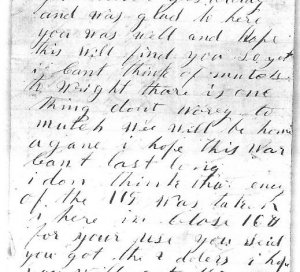 and was glad to here
you was well and hope
this will find you so yet
i cant think of mutch
to wright thare is one
thing dont worey to
mutch wee will be home
agane i hope this war
cant last long
i don think that eney
of the 119 was
i here in close
for your use you said
you got the 2 dolers i hope